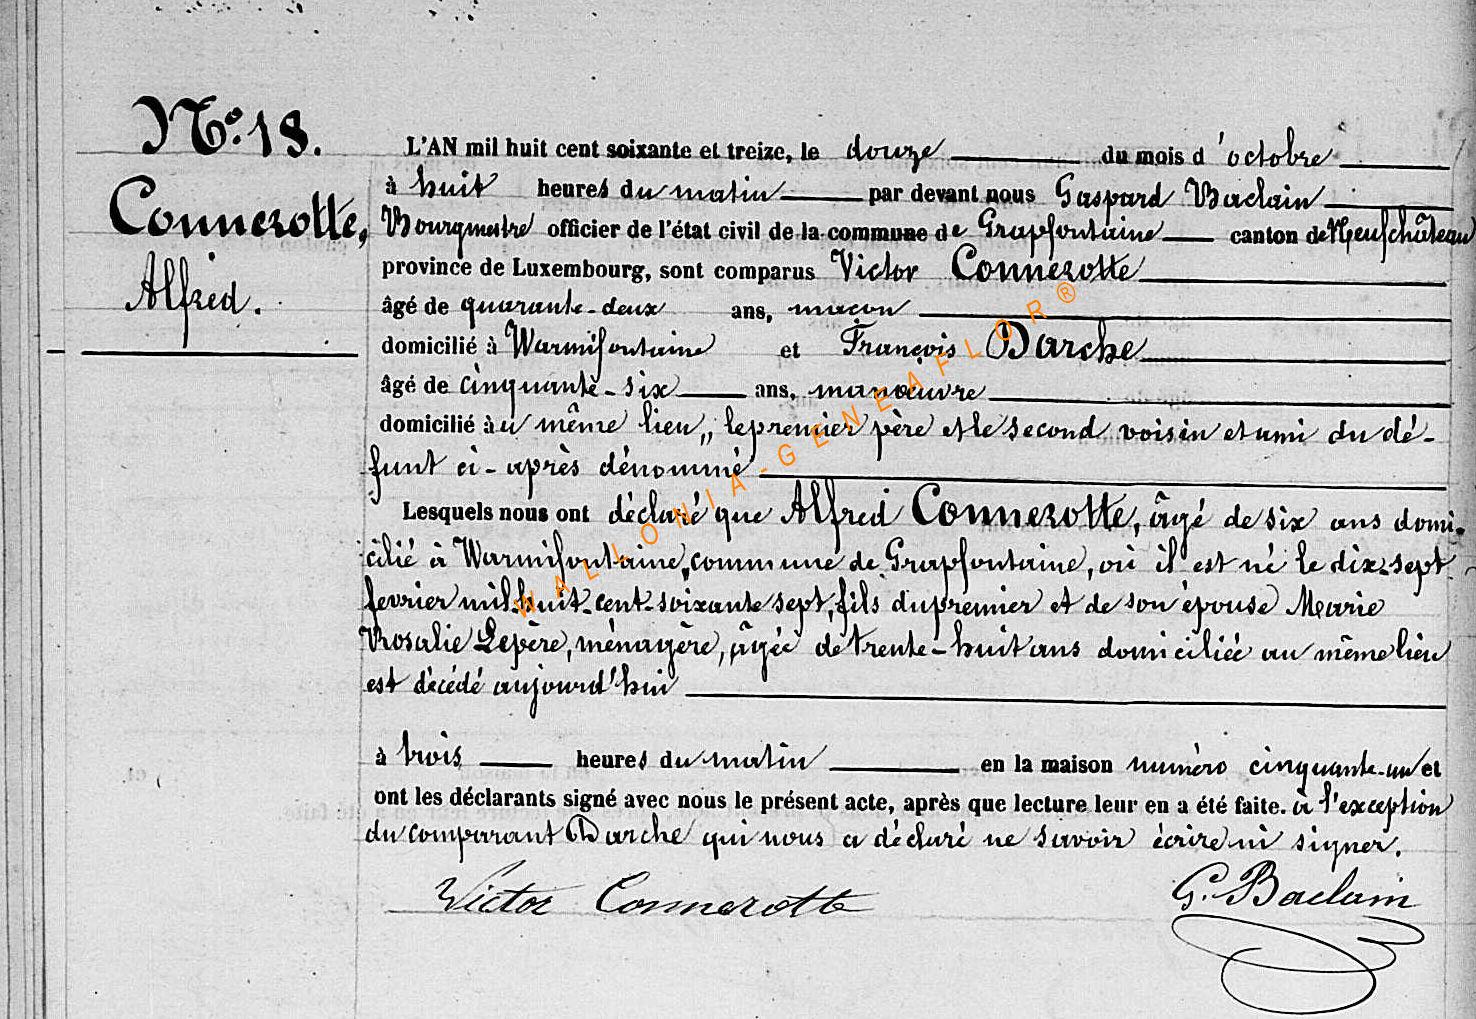 N° 18.
Connerotte,
Alfred.
L'AN mil huit cent soixante et treize, le douze du mois d'octobre
à huit heures du matin par devant nous Gaspard Baclain
Bourgmestre officier de l'état civil de la commune de Grapfontaine canton de Neufchâteau
province de Luxembourg, sont comparus Victor Connerotte
âgé de quarante-deux ans, maçon
domicilié à Warmifontaine et François Darche
âgé de cinquante-six ans, manœuvre
domicilié au même lieu,, le premier père et le second voisin et ami du dé-
funt ci-après dénommé
Lesquels nous ont déclaré que Alfred Connerotte, âgé de six ans domi-
cilié à Warmifontaine, commune de Grapfontaine, où il est né le dix-sept
fevrier mil-huit-cent-soixante sept, fils du premier et de son épouse Marie
Rosalie Lepère, ménagère, âgée de trente-huit ans domiciliée au même lieu
est décédé aujourd'hui
à trois heures du matin en la maison numéro cinquante-un et
ont les déclarants signé avec nous le présent acte, après que lecture leur en a été faite. à l'exception
du comparant Darche qui nous a déclaré ne savoir écrire ni signer.
Victor Connerotte G. Baclain
WALLONIA-GENEAFLOR®